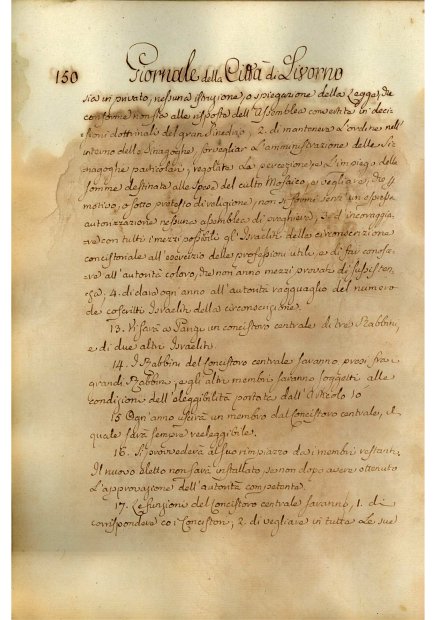 150 Giornale della Città di Livorno
sia in privato, nessuna istruzione, o spiegazione della Legge, che
conforme non sia alle risposte dell'Assemblea convertite in deci
sioni dottrinali del gran Sinedrio; 2. di mantenere l'ordine nell'
interno delle Sinagoghe, sorvegliar l'amministrazione delle Si
nagoghe particolari, regolare la percezione, e l'impiego delle
somme destinate alle spese del culto Mosaico, e vegliare, che p
motivo, o sotto pretesto di religione, non si formi senz'un espressa
autorizzazione nessuna assemblea di preghiera; 3. d'incoraggia
re con tutti i mezzi possibili gl'Israeliti della circonscrizione
concistoriale all'esercizio delle professioni utili, e di far conosce
re all'autorità coloro, che non anno mezzi provati di sussisten
za; 4. di dare ogni anno all'autorità ragguaglio del numero
de coscritti Israeliti della circonscrizione.
13. Vi sarà a Parigi un concistoro centrale di tre Rabbini,
e di due altri Israeliti.
14. I Rabbini del Concistoro centrale saranno presi fra i
grandi Rabbini, e gli altri membri saranno soggetti alle
condizioni dell'eleggibilità portata dall'Articolo 10
15 Ogni anno uscirà un membro dal Concistoro centrale, il
quale sarà sempre reeleggibile.
16. Si provvederà al suo rimpiazzo dai membri restanti.
Il nuovo eletto non sarà installato se non dopo avere ottenuto
l'approvazione dell'autorità competente.
17. Le funzioni del Concistoro centrale saranno, 1. di
corrispondere co i Concistori; 2. di vegliare in tutte le sue